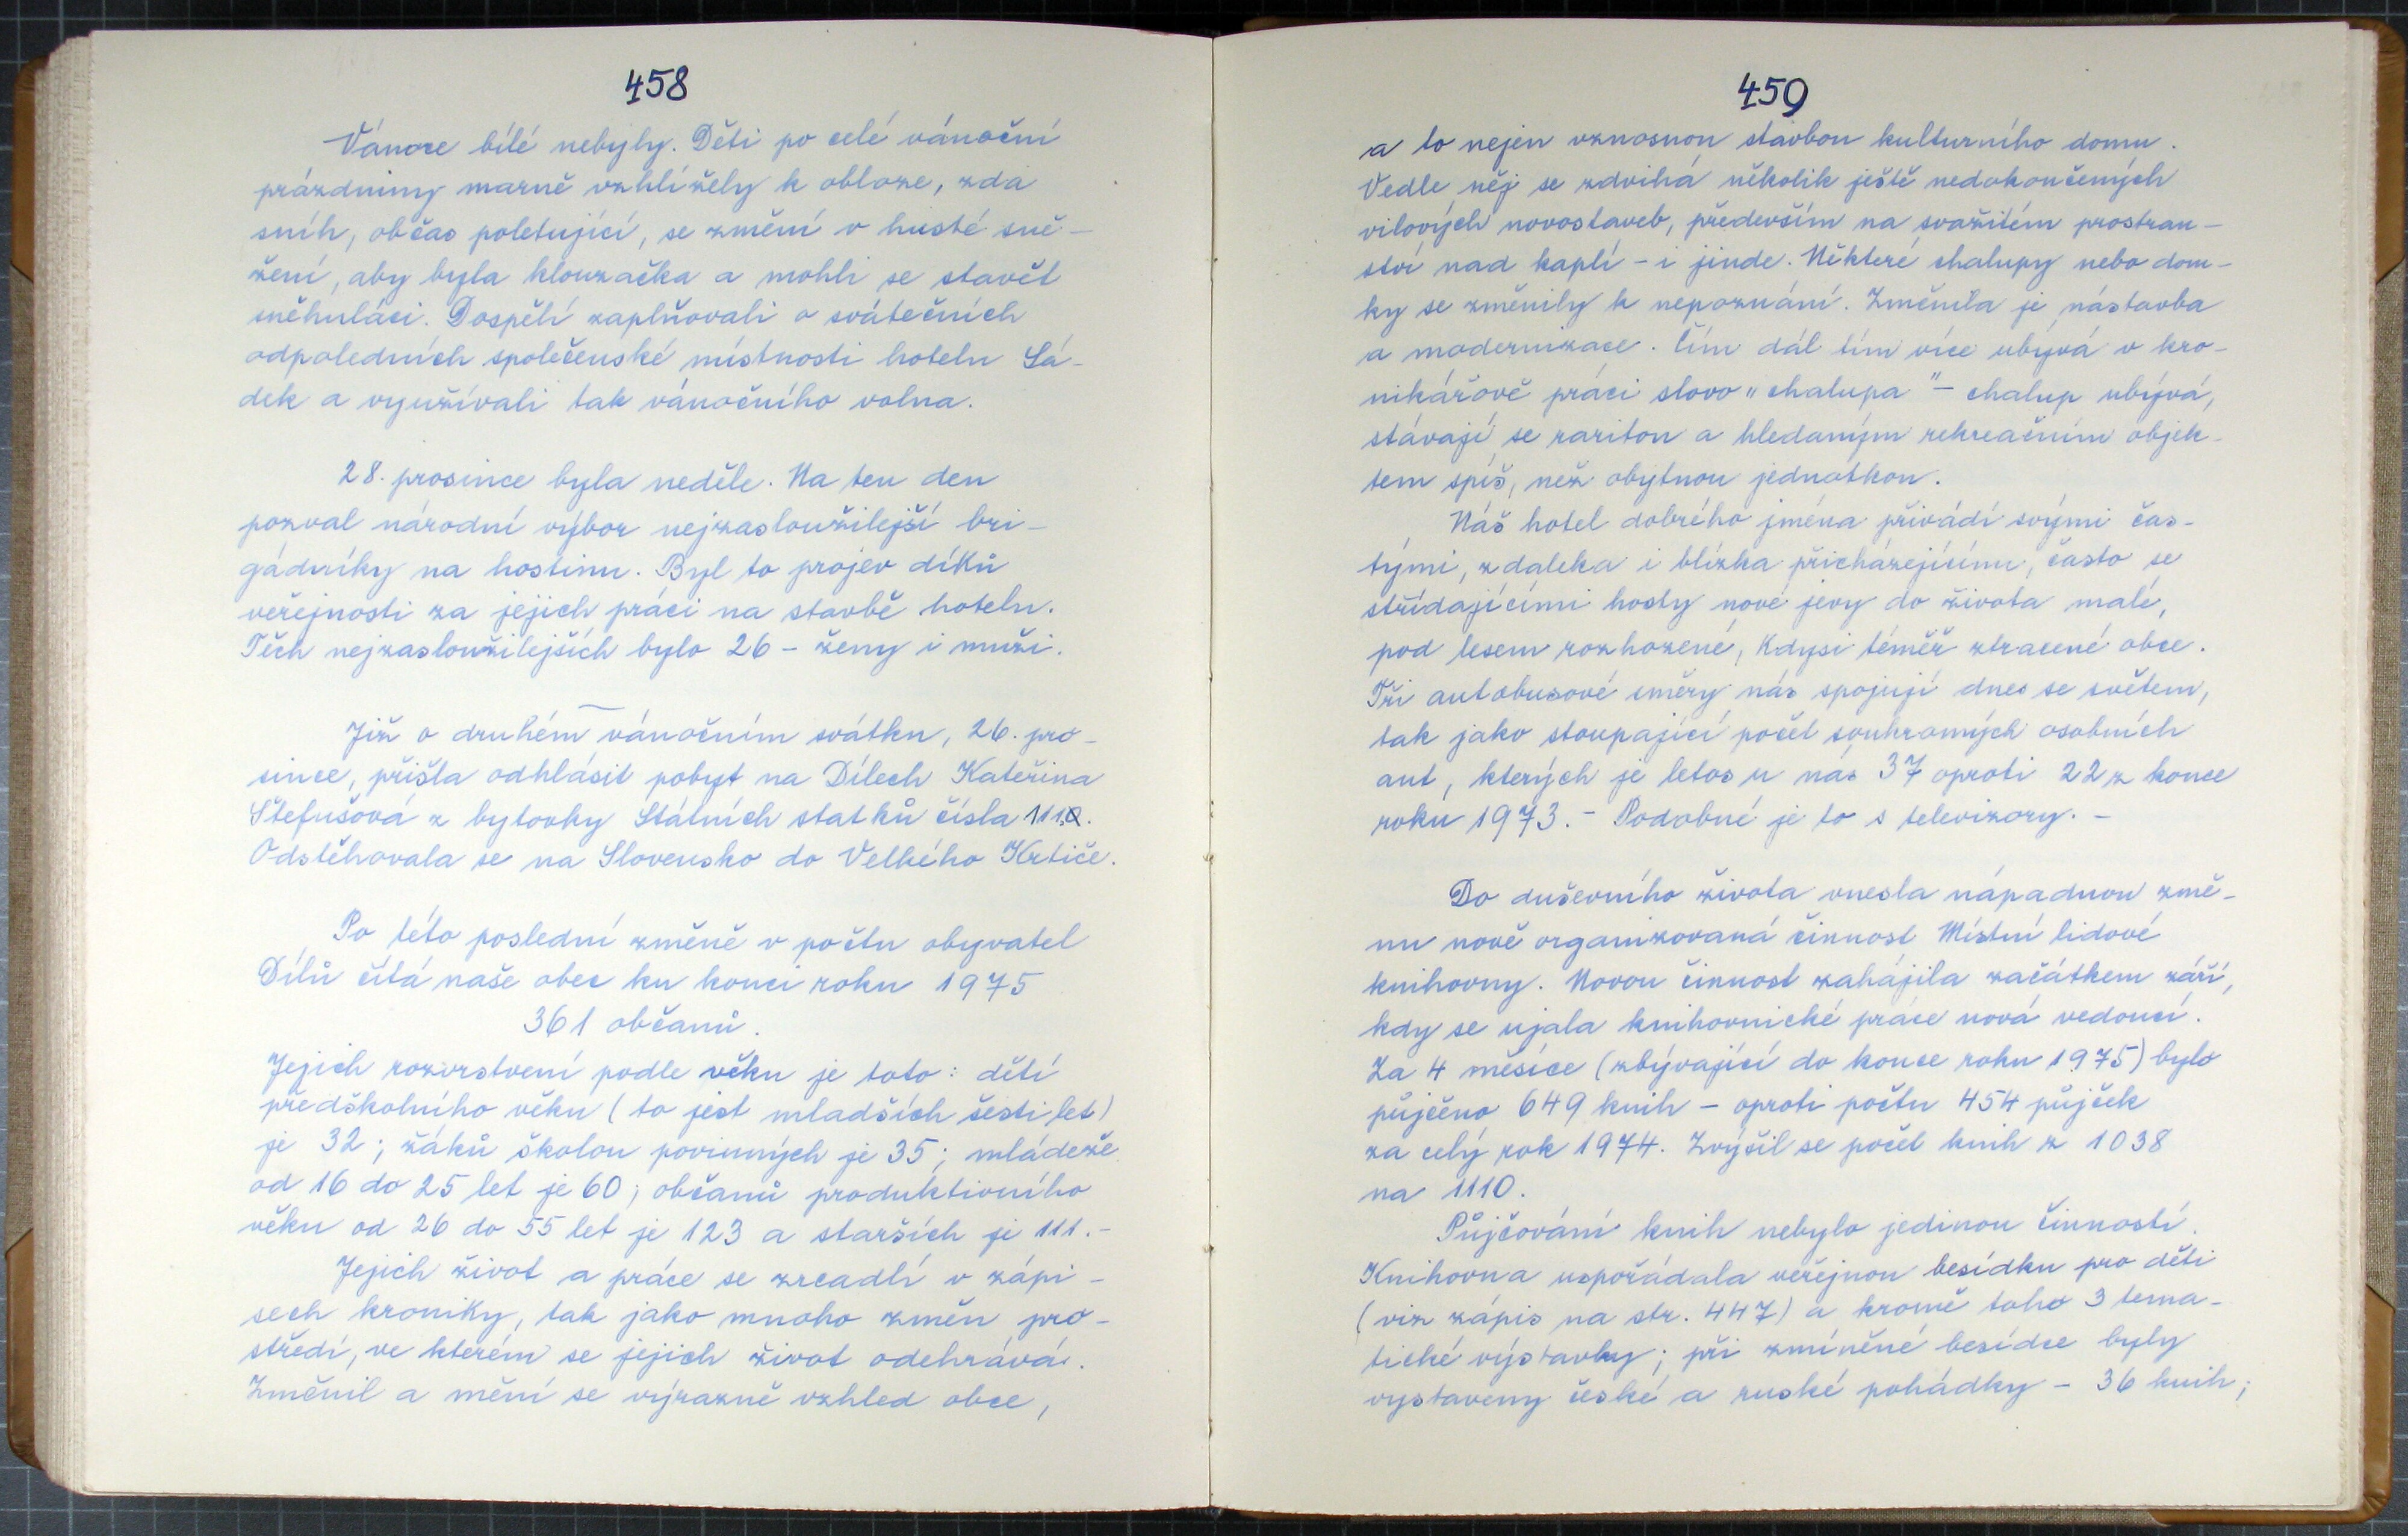 458
Vánoce bílé nebyly. Děti po celé vánoční
prázdniny marně vzhlížely k obloze, zda
sníh, občas poletující, se změní v husté sně-
žení, aby byla klouzačka a mohli se stavět
sněhuláci. Dospělí zaplňovali o svátečních
odpoledních společenské místnosti hotelu Sá-
dek a využívali tak vánočního volna.
28. prosince byla neděle. Na ten den
pozval národní výbor nejzasloužilejší bri-
gádníky na hostinu. Byl to projev díků
veřejnosti za jejich práci na stavbě hotelu.
Těch nejzasloužilejších bylo 26 - ženy i muži.
Již o druhém vánočním svátku, 26. pro-
since, přišla odhlásit pobyt na Dílech Kateřina
Štefušová z bytovky Státních statků čísla 111.
Odstěhovala se na Slovensko do Velkého Krtíče.
Po této poslední změně v počtu obyvatel
Dílů čítá naše obec ku konci roku 1975
361 občanů.
Jejich rozvrstvení podle věku je toto: dětí
předškolního věku (to jest mladších šesti let)
je 32; žáků školou povinných je 35; mládeže
od 16 do 25 let je 60; občanů produktivního
věku od 26 do 55 let je 123 a starších je 111.-
Jejich život a práce se zrcadlí v zápi-
sech kroniky, tak jako mnoho změn pro-
středí, ve kterém se jejich život odehrává.
Změnil a mění se výrazně vzhled obce,
459
a to nejen vznosnou stavbou kulturního domu.
Vedle něj se zdvihá několik ještě nedokončených
vilových novostaveb, především na svažitém prostran-
ství nad kaplí - i jinde. Některé chalupy nebo dom-
ky se změnily k nepoznání. Změnila je nástavba
a modernizace. Čím dál tím více ubývá v kro-
nikářově práci slovo "chalupa" - chalup ubývá,
stávají se raritou a hledaným rekreačním objek-
tem spíš, než obytnou jednotkou.
Náš hotel dobrého jména přivádí svými čas-
tými, zdaleka i blízka přicházejícími, často se
střídajícími hosty nové jevy do života malé,
pod lesem rozhozené, kdysi téměř ztracené obce.
Tři autobusové směry nás spojují dnes se světem,
tak jako stoupající počet soukromých osobních
aut, kterých je letos u nás 37 oproti 22 z konce
roku 1973. - Podobné je to s televizory. -
Do duševního života vnesla nápadnou změ-
nu nově organizovaná činnost Místní lidové
knihovny. Novou činnost zahájila začátkem září,
kdy se ujala knihovnické práce nová vedoucí.
Za 4 měsíce (zbývající do konce roku 1975) bylo
půjčeno 649 knih - oproti počtu 454 půjček
za celý rok 1974. Zvýšil se počet knih z 1038
na 1110.
Půjčování knih nebylo jedinou činností.
Knihovna uspořádala veřejnou besídku pro děti
(viz zápis na str. 447) a kromě toho 3 tema-
tické výstavky; při zmíněné besídce byly
vystaveny české a ruské pohádky - 36 knih;